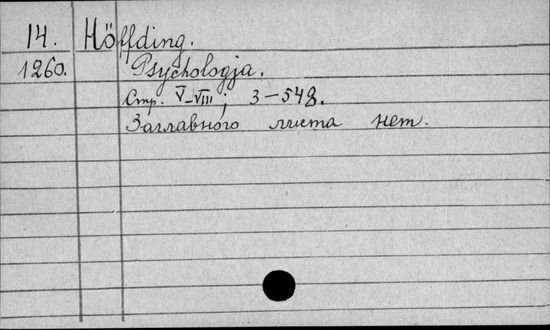 14. Höffding.
1260. Psychologja.
Стр. V-VIII; 3-548.
Заглавного листа нет.